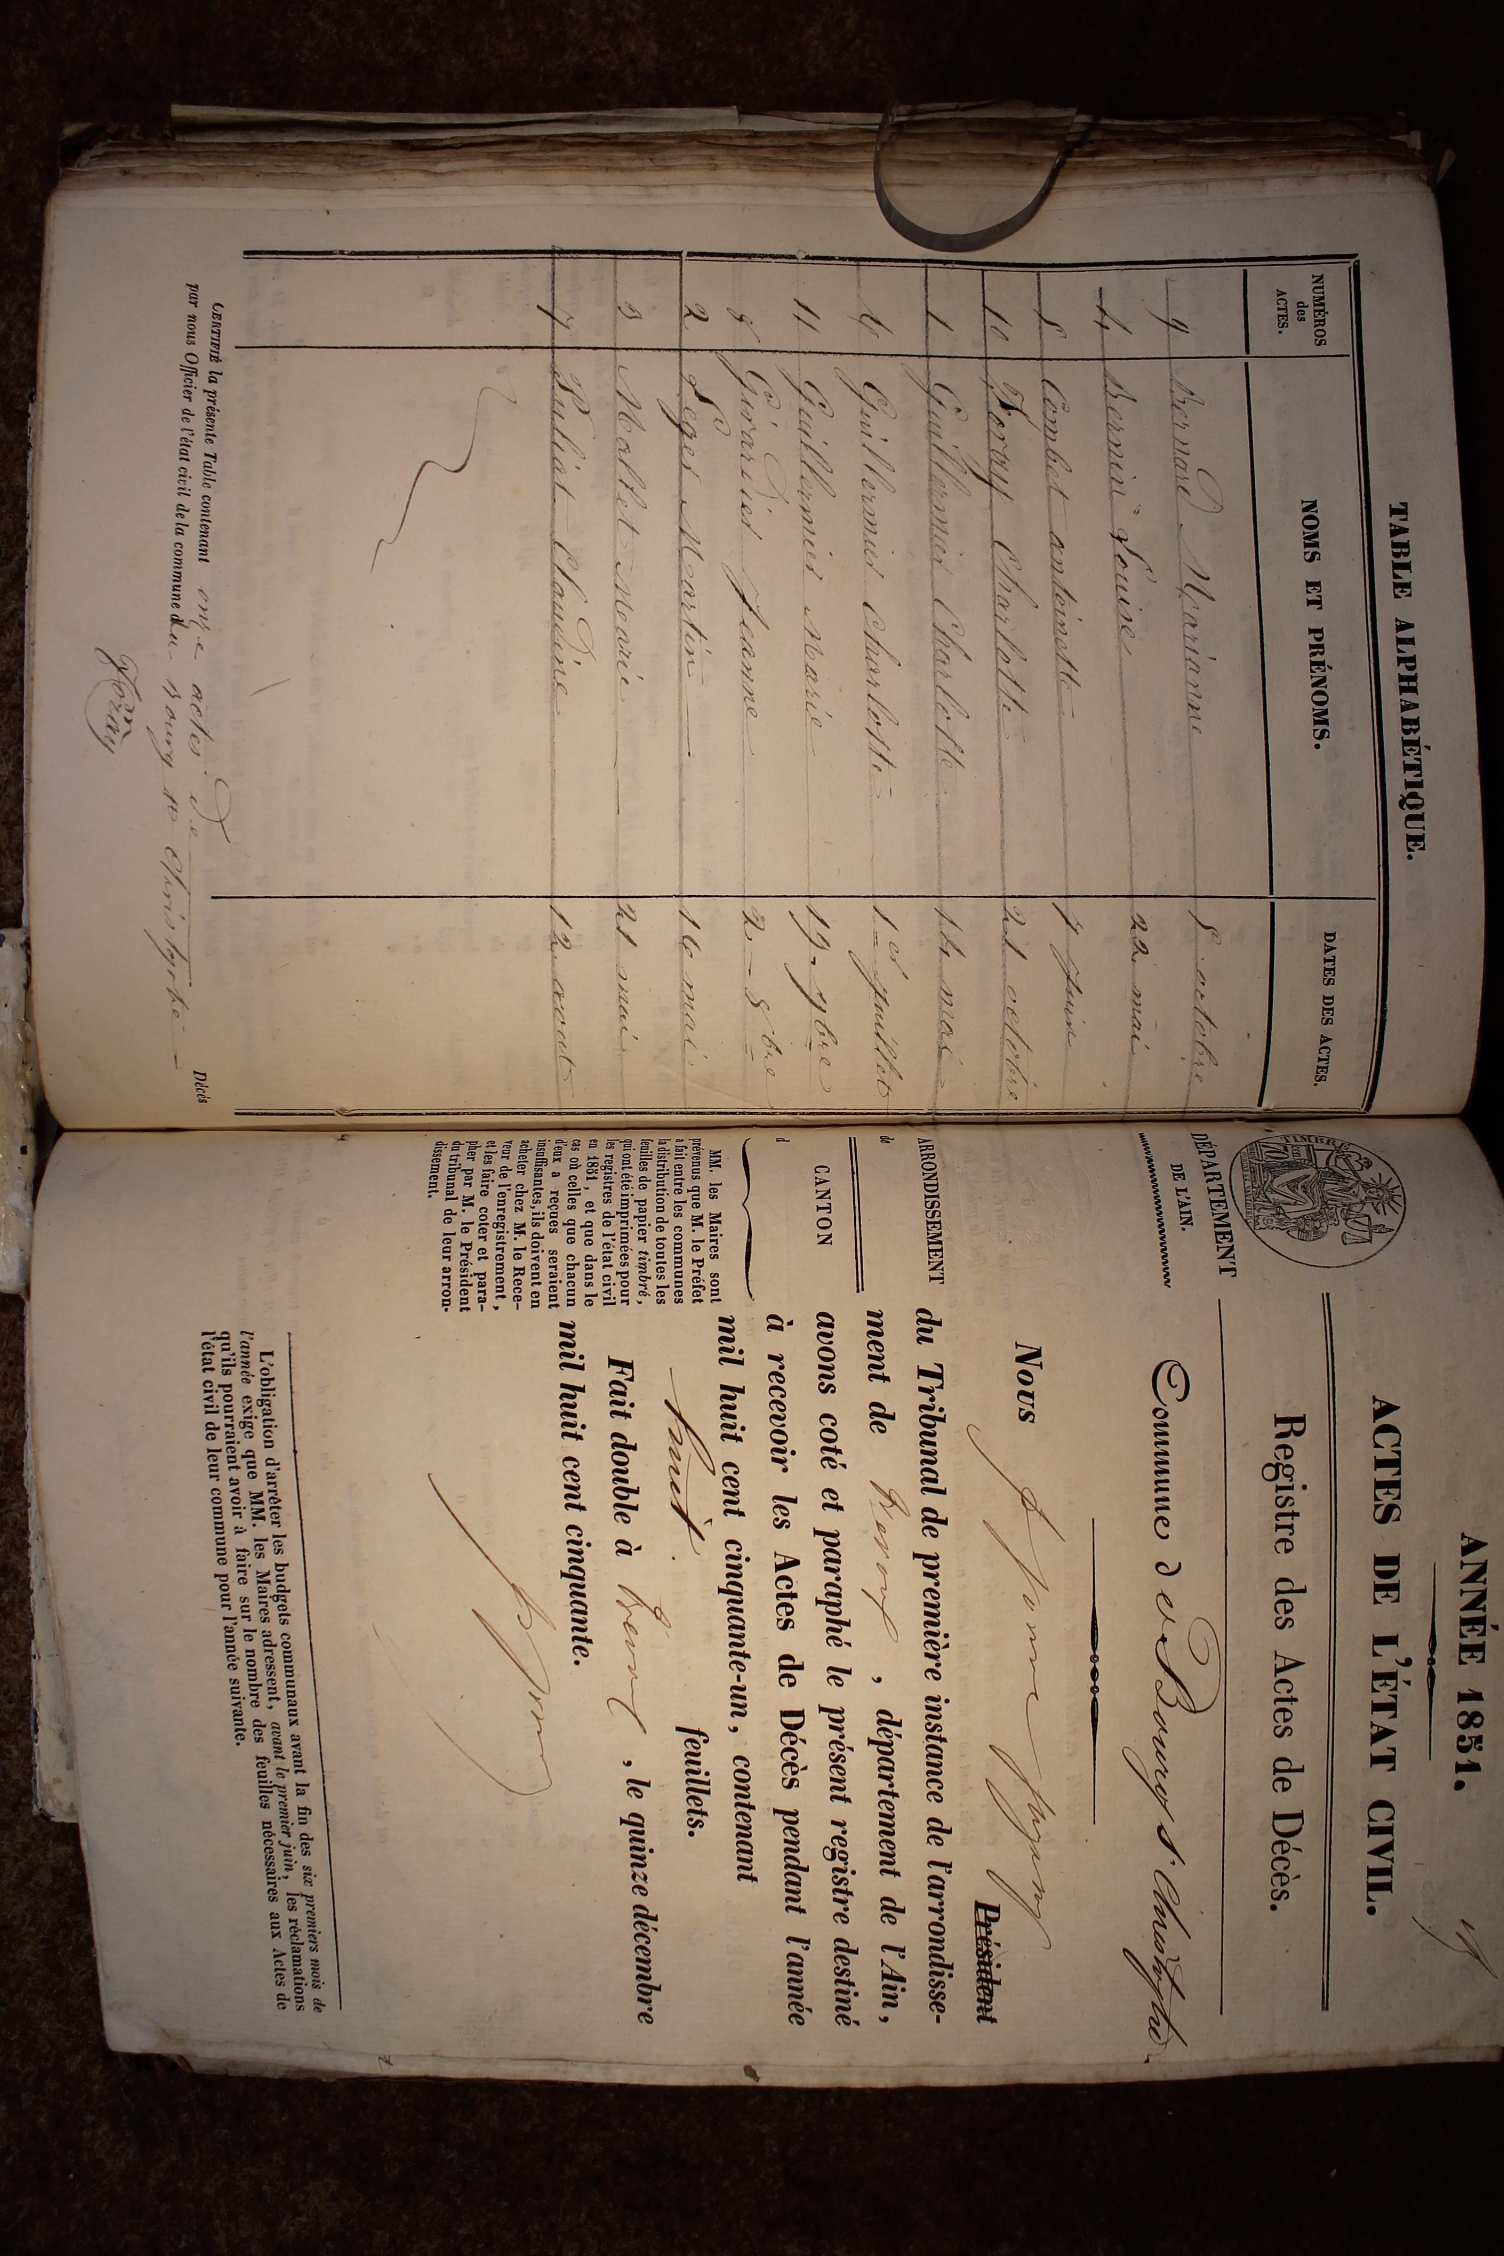 TABLE ALPHABÉTIQUE.
NUMÉROS
des
ACTES.
NOMS ET PRÉNOMS.
DATES DES ACTES.
9 Bernard Marianne 8 octobre
4 Bernin Louise 22 mai
5 Combet antoinette 7 juin
10 Foray Charlotte 21 octobre
1 Guillermier Charlotte
6 Guillermier Charlotte 1er juillet
11 Guillermier Marie 19 9bre
8 Girardier Jeanne 2 8bre
2 Leger Martin 16 mai
3 Mallet Marie 21 mai
7 Puliat Claudine 12 aout
CERTIFIÉ la présente Table contenant onze actes de
par nous Officier de l'état civil de la commune du Bourg st Christophe
Décès
Foray
ANNÉE 1851.
ACTES DE L'ÉTAT CIVIL.
Registre des Actes de Décès.
TIMBRE
DÉPARTEMENT
DE L'AIN.
Commune de Bourg St Christophe
ARRONDISSEMENT
de
CANTON
d
MM. les Maires sont
prévenus que M. le Préfet
a fait entre les communes
la distribution de toutes les
feuilles de papier timbré,
qui ont été imprimées pour
les registres de l'état civil
en 1851, et que dans le
cas où celles que chacun
d'eux a reçues seraient
insuffisantes, ils doivent en
acheter chez M. le Rece-
veur de l'enregistrement,
et les faire coter et para-
pher par M. le Président
du tribunal de leur arron-
dissement.
Nous
Président
du Tribunal de première instance de l'arrondisse-
ment de Trevoux, département de l'Ain,
avons coté et paraphé le présent registre destiné
à recevoir les Actes de Décès pendant l'année
mil huit cent cinquante-un, contenant
huit feuillets.
Fait double à Trevoux, le quinze décembre
mil huit cent cinquante.
L'obligation d'arrêter les budgets communaux avant la fin des six premiers mois de
l'année exige que MM. les Maires adressent, avant le premier juin, les réclamations
qu'ils pourraient avoir à faire sur le nombre des feuilles nécessaires aux Actes de
l'état civil de leur commune pour l'année suivante.